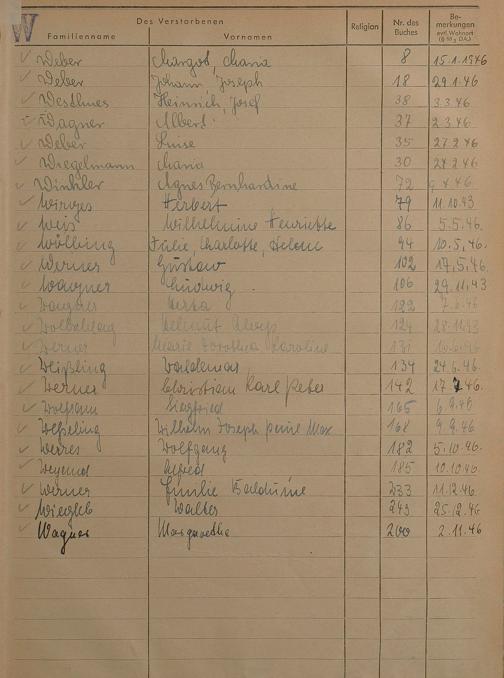 W
Des Verstorbenen
Familienname Vornamen Religion Nr. des Buches Bemerkungen evtl. Wohnort
Weber Margot, Maria 8 15.1.1946
Weber Johann, Joseph 18 29.1.46
Westhues Heinrich, Josef 38 3.3.46
Wagner Albert 37 2.3.46
Weber Luise 35 27.2.46
Wiegelmann Maria 30 24.2.46
Winkler Agnes Bernhardine 72 9.4.46
Wirges Herbert 79 11.10.43
Weis Wilhelmine Henriette 86 5.5.46.
Wölbling Julie, Charlotte, Helene 94 10.5.46.
Werner Gustav 102 17.5.46.
Wagner Ludwig 106 29.11.43
Herta 122 7.6.46
Helmut Aloys 124 28.11.43
Werner Marie Dorothea Karoline 131
Weißling Waldemar 134 24.6.46.
Werner Christian Karl Peter 142 17.7.46.
Siegfried 165 6.9.46
Weßeling Wilhelm Joseph Max 168 9.9.46
Werres Wolfgang 182 5.10.46.
Weyand Alfred 185 10.10.46
Werner Emilie Balduine 233 11.12.46
Wiegleb Walter 243 25.12.46
Wagner Margarethe 200 2.11.46